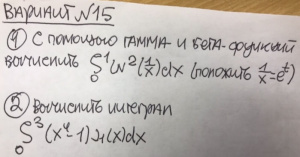 ВАРИАНТ №15
① С ПОМОЩЬЮ ГАММА И БЕТА-ФУНКЦИЙ
ВЫЧИСЛИТЬ ∫₀¹ ln²(1/x)dx (ПОЛОЖИТЬ 1/x=eᵗ)
② ВЫЧИСЛИТЬ ИНТЕГРАЛ
∫₀³ (x⁴-1) η(x)dx